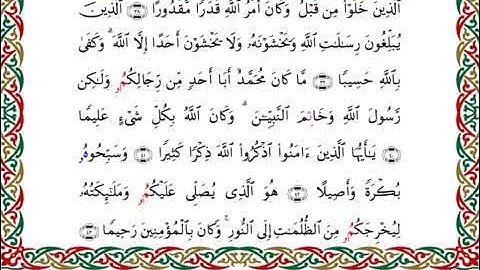 الَّذِينَ خَلَوْاْ مِن قَبْلُ وَكَانَ أَمْرُ اللَّهِ قَدَرًا مَّقْدُورًا ﴿٣٨﴾ الَّذِينَ
يُبَلِّغُونَ رِسَٰلَٰتِ اللَّهِ وَيَخْشَوْنَهُۥ وَلَا يَخْشَوْنَ أَحَدًا إِلَّا اللَّهَ ۗ وَكَفَىٰ
بِاللَّهِ حَسِيبًا ﴿٣٩﴾ مَّا كَانَ مُحَمَّدٌ أَبَا أَحَدٍ مِّن رِّجَالِكُمُۥ وَلَٰكِن
رَّسُولَ اللَّهِ وَخَاتِمَ النَّبِيِّـۧنَ ۗ وَكَانَ اللَّهُ بِكُلِّ شَىْءٍ عَلِيمًا
﴿٤٠﴾ يَٰٓأَيُّهَا الَّذِينَ ءَامَنُواْ اذْكُرُواْ اللَّهَ ذِكْرًا كَثِيرًا ﴿٤١﴾ وَسَبِّحُوهُۥ
بُكْرَةً وَأَصِيلًا ﴿٤٢﴾ هُوَ الَّذِى يُصَلِّى عَلَيْكُمُۥ وَمَلَٰٓئِكَتُهُۥ
لِيُخْرِجَكُمُۥ مِنَ الظُّلُمَٰتِ إِلَى النُّورِ ۚ وَكَانَ بِالْمُؤْمِنِينَ رَحِيمًا ﴿٤٣﴾